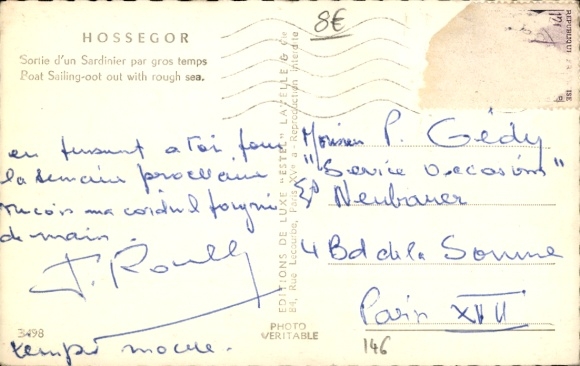 HOSSEGOR
Sortie d'un Sardinier par gros temps
Poat Sailing-oot out with rough sea.
8€
en pensant a toi pour
la semaine prochaine
recois ma cordial poignée
de main.
3498
temps
EDITIONS DE LUXE "ESTEL" LAVELLE & Cie
84, Rue Lecourbe, Paris XVe - Reproduction Interdite
PHOTO
VERITABLE
Monsieur P. Gédy
"Service Occasions"
Neubauer
4 Bd de la Somme
Paris XVII
146